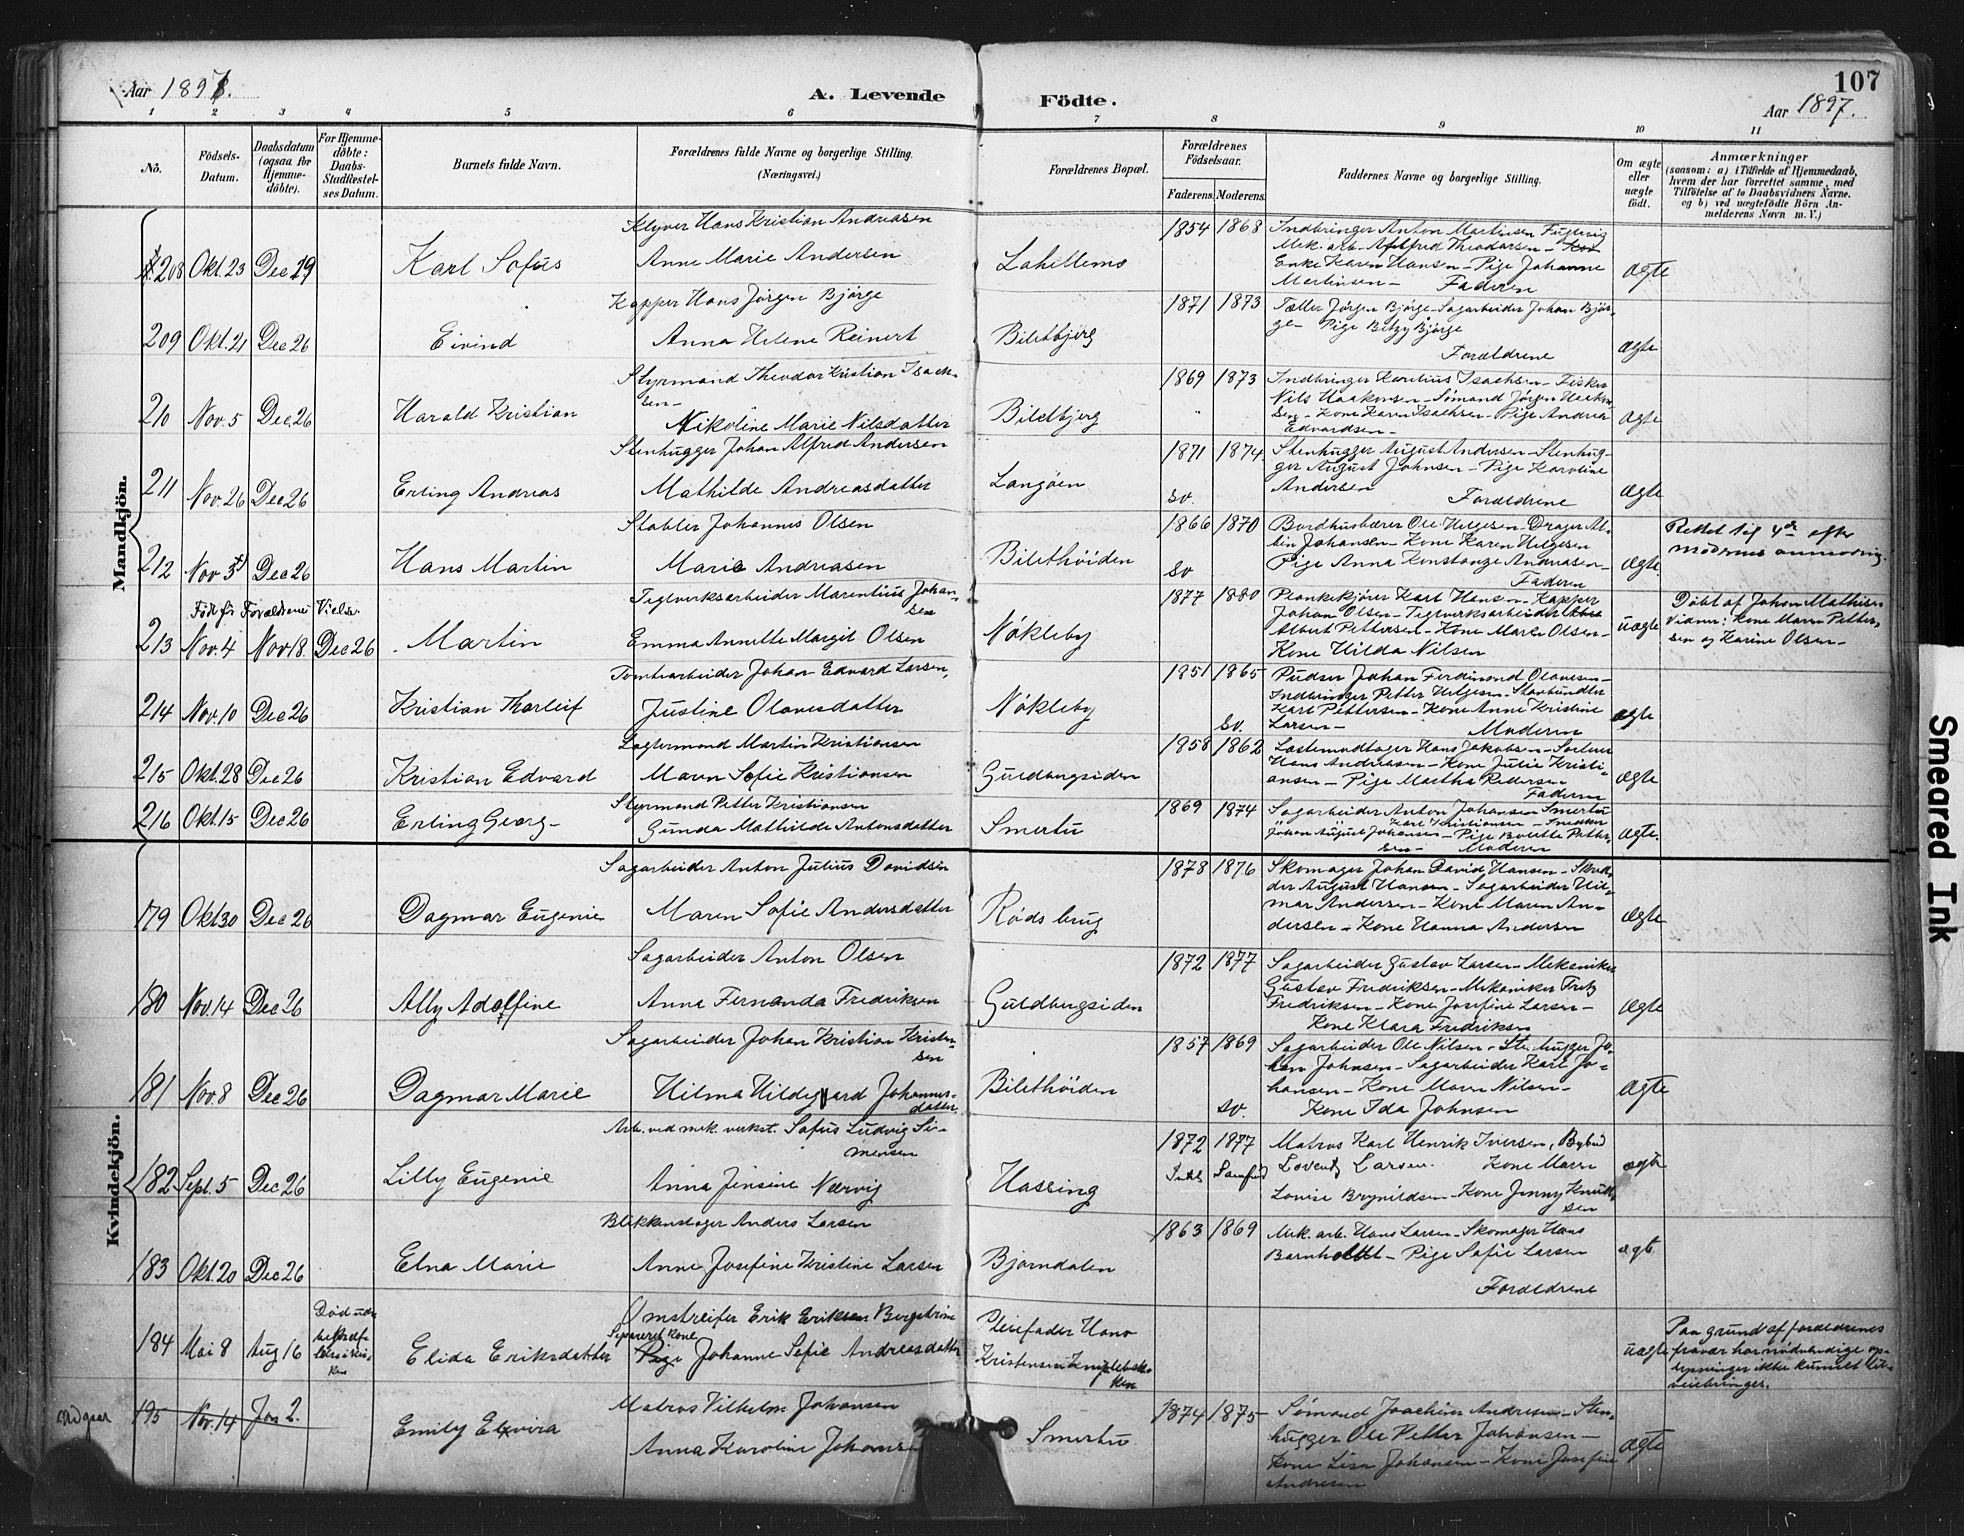 Aar 1897. A. Levende Födte. Aar 1897. 107
1 2 3 4 5 6 7 8 9 10 11
No. Födsels-Datum. Daabsdatum (ogsaa for Hjemmedöbte). For Hjemmedöbte: Daabs-Stadfæstelses Datum. Barnets fulde Navn. Forældrenes fulde Navne og borgerlige Stilling. (Næringsvei.) Forældrenes Bopæl. Forældrenes Födselsaar. Faderens. Moderens. Faddernes Navne og borgerlige Stilling. Om ægte eller uægte födt. Anmærkninger (saasom: a) i Tilfælde af Hjemmedaab, hvem der har forrettet samme, med Tilföielse af to Daabsvidners Navne. og b) ved uægtefödte Börn Anmelderens Navn m. V.)
Mandkjön.
208 Okt. 23 Dec 19 Karl Sofus
Klyver Hans Kristian Andreasen
Anne Marie Andersen
Lahellemo 1854 1868
Indbringer Anton Martinsen
Mek. arb. Alfred Theodorsen
Enke Karen Hansen – Pige Johanne
Martinsen – Faderen
Ægte
209 Okt. 21 Dec 26 Eivind
Kapper Hans Jørgen Bjørge
Anna Helene Reinert
Biletbjerg 1871 1873
Tæller Jørgen Bjørge – Sagarbeider Johan Bjør-
ge – Pige Betzy Bjørge
Forældrene
Ægte
210 Nov. 5 Dec 26 Harald Kristian
Styrmand Theodor Kristian Isach-
sen –
Nikoline Marie Nilsdatter
Biletbjerg 1869 1873
Indbringer Karelius Isachsen – Fisker
Nils Haakonsen – Sømand Jørgen Haakon-
sen – Kone Karen Isachsen – Pige Andrea
Edvardsen –
Ægte
211 Nov. 26 Dec 26 Erling Andreas
Stenhugger Johan Alfred Andersen
Mathilde Andreasdatter
Langøen 1871 1874
sv.
Stenhugger August Andersen – Stenhug-
ger August Johnsen – Pige Karoline
Andersen Forældrene
Ægte
212 Nov 3 Dec 26 Hans Martin
Stabler Johannes Olsen
Marie Andreasen
Bilethøiden 1866 1870
sv
Bordhusbærer Ole Helgesen – Drager Al-
bin Johansen – Kone Karen Helgesen
Pige Anna Konstanze Andreasen –
Faderen
Ægte.
Rettet til 4de efter
moderens anmodning.
Født før Forældrenes Vielse
213 Nov. 4 Nov 18. Dec 26 Martin
Teglverksarbeider Marentius Johan-
sen
Emma Annette Margit Olsen
Nøkleby 1877 1880
Plankekjører Karl Hansen – Kapper
Johan Olsen – Teglverksarbeider
Albert Pettersen – Kone Maren Olsen –
Kone Hilda Nilsen
uægte
Døbt af Johan Mathisen
Vidner: Kone Maren Petter-
sen og Karine Olsen –
214 Nov. 10 Dec 26 Kristian Thorleif
Tomtearbeider Johan Edvard Larsen,
Justine Olavesdatter
Nøkleby 1851 1865
sv.
Pudser Johan Ferdinand Olavesen –
Indbringer Petter Helgesen – Stavbundter
Karl Pettersen – Kone Anne Kristine
Larsen – Moderen
Ægte
215 Okt. 28 Dec 26 Kristian Edvard
Lagtermand Martin Kristiansen
Maren Sofie Kristiansen
Guldbergsiden 1858 1862
Lastemodtager Hans Jakobsen – Sorterer
Hans Andreasen – Kone Julie Kristi-
ansen – Pige Martha Pedersen
Faderen
Ægte
216 Okt. 15 Dec 26 Erling Georg –
Styrmand Petter Kristiansen
Gunda Mathilde Antonsdatter
Smertu 1869 1874
Sagarbeider Anton Johansen Smertu
Karl Kristiansen – Snedker
Johan August Johansen – Pige Bolette Petter-
sen – Moderen
Ægte.
Kvindekjön.
179 Okt 30 Dec 26 Dagmar Eugenie
Sagarbeider Anton Julius Davidsen
Maren Sofie Andersdatter
Røds brug 1878 1876
Skomager Johan David Hansen –
August Hansen – Sagarbeider Hil-
mar Andersen – Kone Maren An-
dersen – Kone Hanna Andersen
Ægte
180 Nov. 14 Dec 26 Ally Adolfine
Sagarbeider Anton Olsen
Anna Fernanda Fredriksen
Guldbergsiden 1872 1877
Sagarbeider Gustav Larsen – Mekaniker
Gustav Fredriksen – Mekaniker Fritz
Fredriksen – Kone Josefine Larsen –
Kone Klara Fredriksen
Ægte
181 Nov. 8 Dec 26 Dagmar Marie
Sagarbeider Johan Kristian Kristen-
sen
Hilma Hildegard Johannes-
datter.
Bilethøiden 1857 1869
sv.
Sagarbeider Ole Nilsen – Stenhugger Jo-
han Johnsen – Sagarbeider Karl Jo-
hansen – Kone Maren Nilsen –
Kone Ida Johnsen
Ægte
182 Sept. 5 Dec 26 Lilly Eugenie
Arb. ved mek. verkst. Sofus Ludvig Si-
mensen
Anna Jensine Nærvig
Hassing 1872 1877
Matros Karl Henrik Iversen, Bybud
Lorentz Larsen. Kone Maren
Lovise Brynildsen – Kone Jenny Knud-
sen
ægte
183 Okt. 20 Dec 26 Elna Marie
Blikkenslager Anders Larsen
Anne Josefine Kristine Larsen
Bjørndalen 1863 1869
Mek. arb. Hans Larsen – Skomager Hans
Barnholdt – Pige Sofie Larsen
Forældrene
ægte
184 Mai 8 Aug 16 Død uden
bekræftelse i kir-
ken
Elida Eriksdatter
Omstreifer Erik Eriksen Bergstrøm
Separeret Kone
Pige Johanne Sofie Andreasdatter
Pleiefader Hans
Kristensen
uægte
Paa grund af forældrenes
fravær har nødvendige op-
lysninger ikke kunnet til-
veiebringes.
195 Nov. 14 Jan 2. Emily Elvira
Matros Vilhelm Johansen
Anna Karoline Johansen
Smertu 1874 1875
Sømand Joachim Andresen – Sten-
hugger Ole Petter Johansen –
Kone Lisa Johansen – Kone Josefine
Andresen
Ægte
Smeared Ink